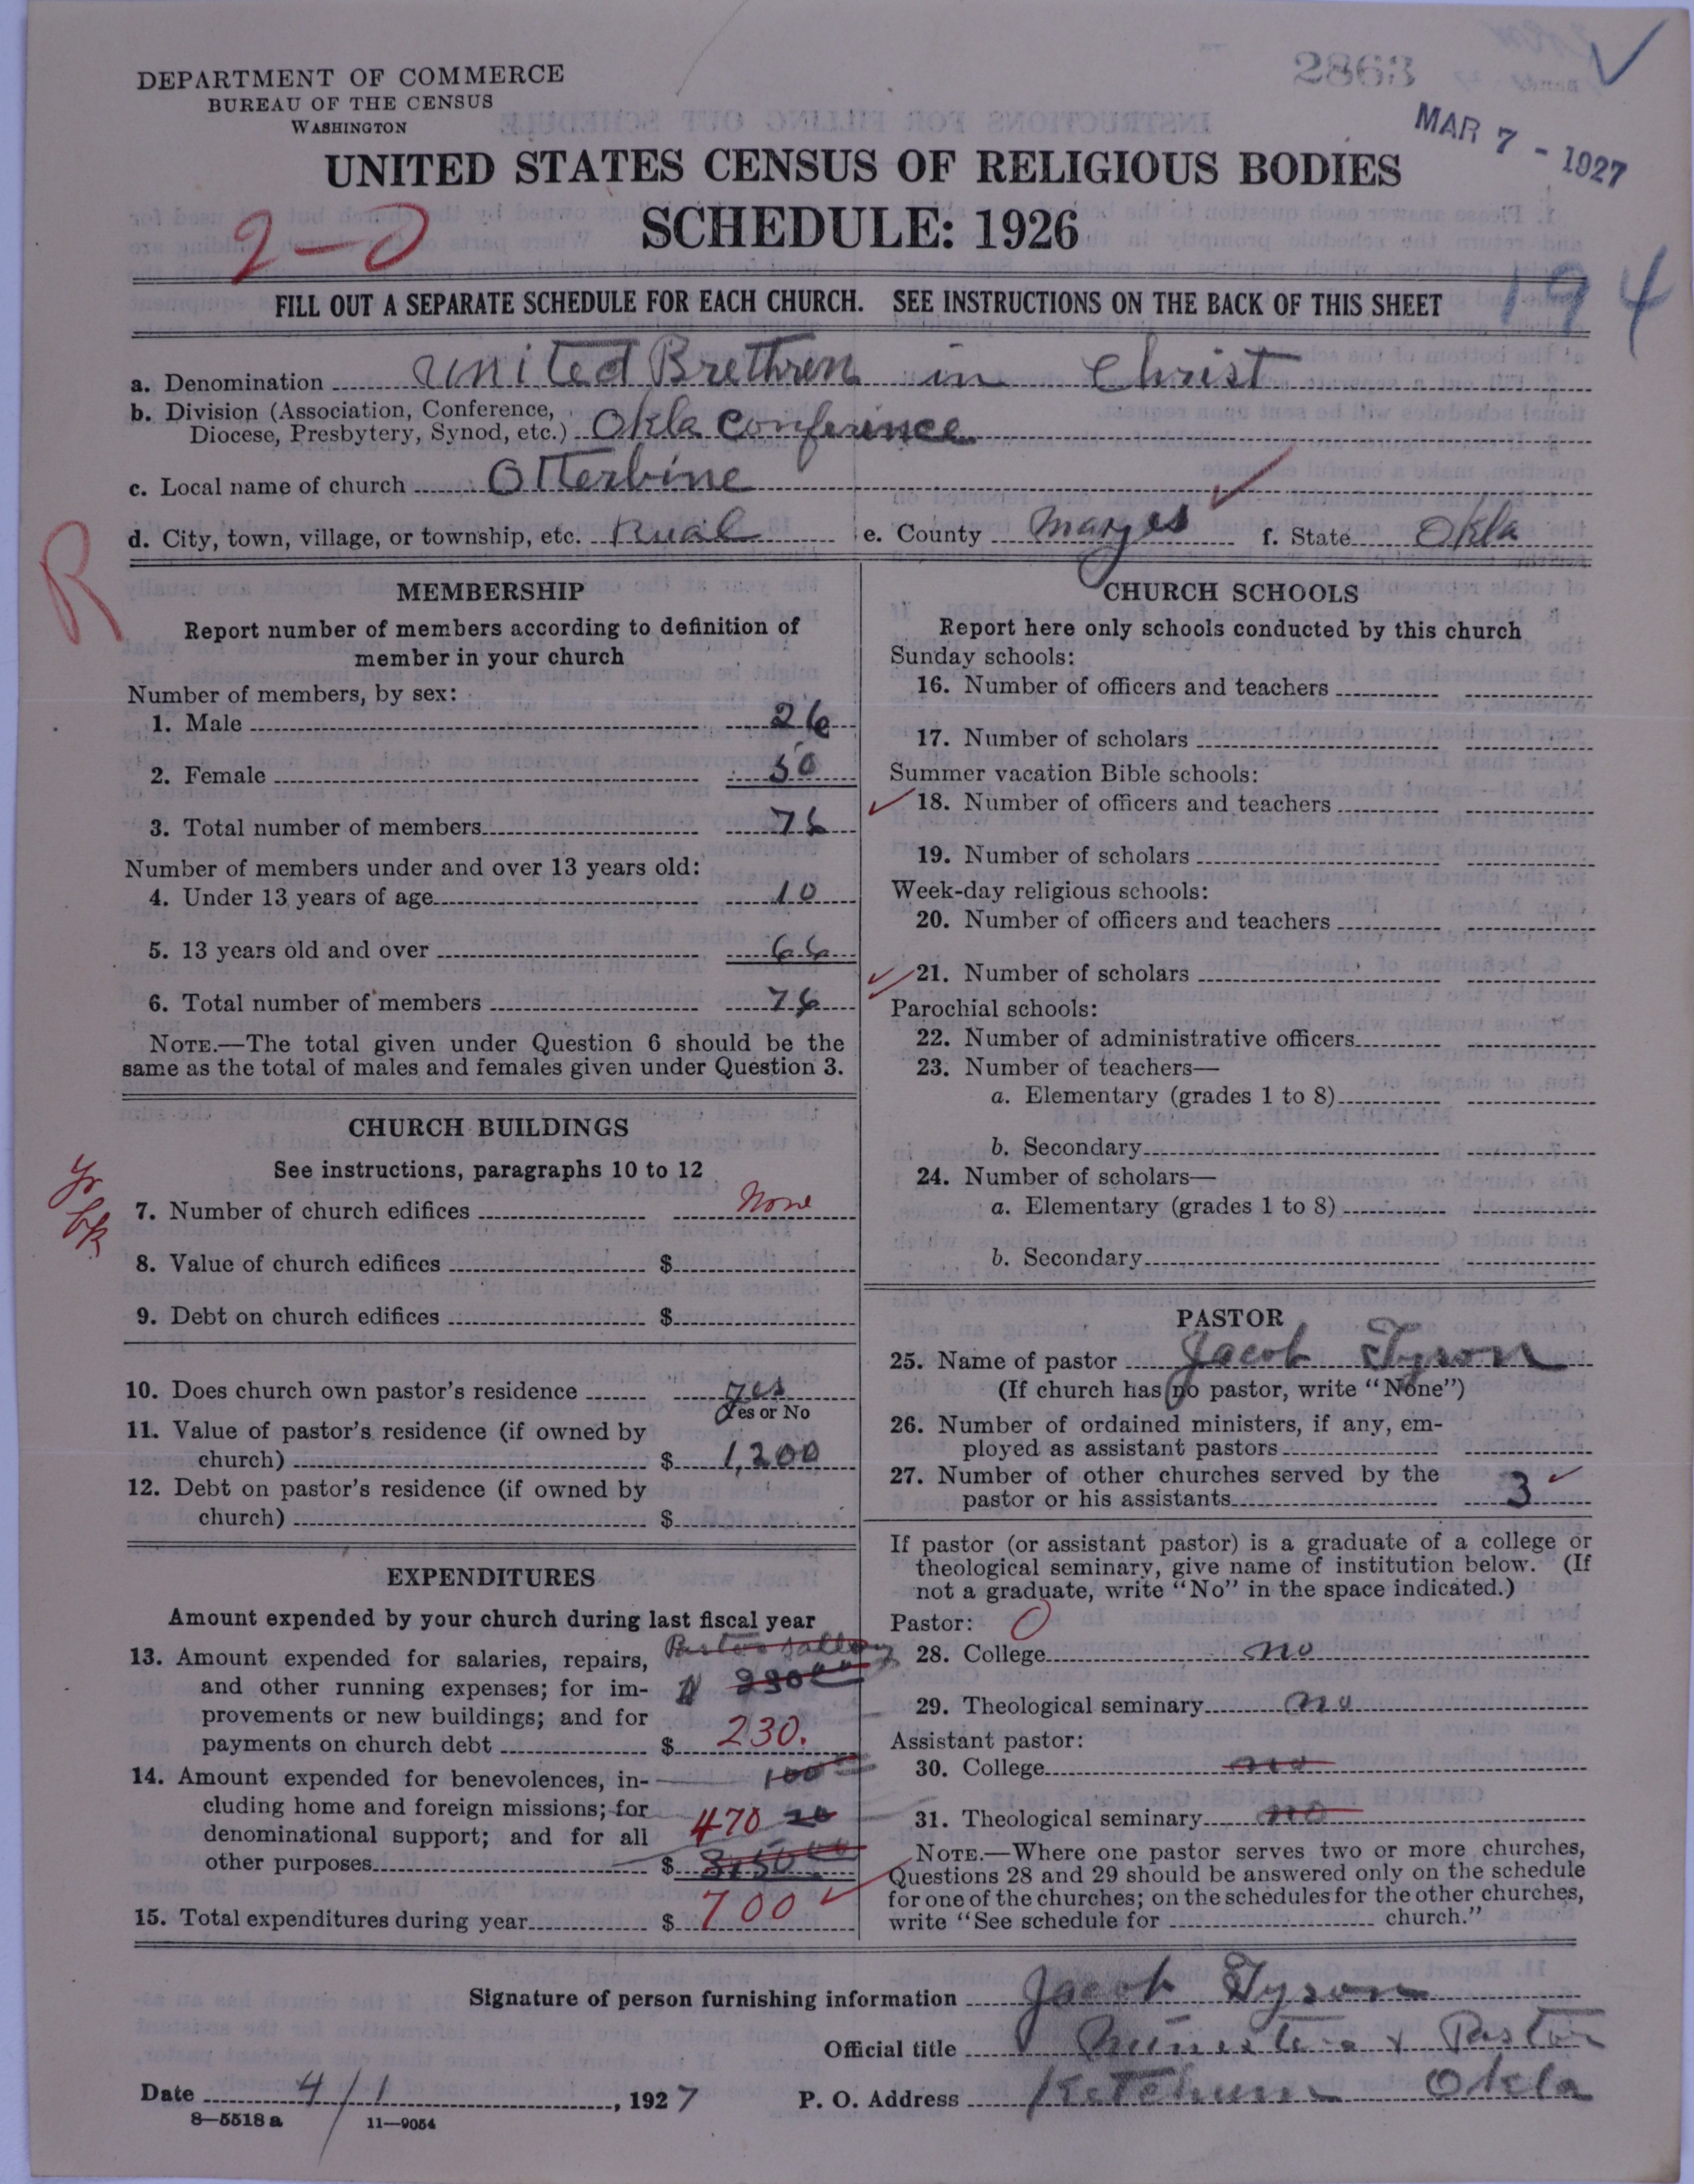 2863
MAR 7 - 1927
DEPARTMENT OF COMMERCE
BUREAU OF THE CENSUS
WASHINGTON
UNITED STATES CENSUS OF RELIGIOUS BODIES
SCHEDULE: 1926
2-0
194
FILL OUT A SEPARATE SCHEDULE FOR EACH CHURCH. SEE INSTRUCTIONS ON THE BACK OF THIS SHEET
a. Denomination United Brethren in Christ
b. Division (Association, Conference,
Diocese, Presbytery, Synod, etc.) Okla Conference
c. Local name of church Otterbine
d. City, town, village, or township, etc. Rual e. County Mayes f. State Okla
R
MEMBERSHIP
Report number of members according to definition of
member in your church
Number of members, by sex:
1. Male 26
2. Female 50
3. Total number of members 76
Number of members under and over 13 years old:
4. Under 13 years of age 10
5. 13 years old and over 66
6. Total number of members 76
NOTE.—The total given under Question 6 should be the
same as the total of males and females given under Question 3.
CHURCH BUILDINGS
See instructions, paragraphs 10 to 12
Yr bk
7. Number of church edifices None
8. Value of church edifices $
9. Debt on church edifices $
10. Does church own pastor's residence yes
Yes or No
11. Value of pastor's residence (if owned by
church) $ 1,200
12. Debt on pastor's residence (if owned by
church) $
EXPENDITURES
Amount expended by your church during last fiscal year
Pastor Sallery
13. Amount expended for salaries, repairs,
and other running expenses; for im- 23000
provements or new buildings; and for
payments on church debt $ 230.
14. Amount expended for benevolences, in- 100
cluding home and foreign missions; for
denominational support; and for all 470 20
other purposes $
15. Total expenditures during year $ 700
CHURCH SCHOOLS
Report here only schools conducted by this church
Sunday schools:
16. Number of officers and teachers
17. Number of scholars
Summer vacation Bible schools:
18. Number of officers and teachers
19. Number of scholars
Week-day religious schools:
20. Number of officers and teachers
21. Number of scholars
Parochial schools:
22. Number of administrative officers
23. Number of teachers—
a. Elementary (grades 1 to 8)
b. Secondary
24. Number of scholars—
a. Elementary (grades 1 to 8)
b. Secondary
PASTOR
25. Name of pastor Jacob Tyson
(If church has no pastor, write "None")
26. Number of ordained ministers, if any, em-
ployed as assistant pastors
27. Number of other churches served by the
pastor or his assistants 3
If pastor (or assistant pastor) is a graduate of a college or
theological seminary, give name of institution below. (If
not a graduate, write "No" in the space indicated.)
Pastor: 0
28. College no
29. Theological seminary no
Assistant pastor:
30. College no
31. Theological seminary no
NOTE.—Where one pastor serves two or more churches,
Questions 28 and 29 should be answered only on the schedule
for one of the churches; on the schedules for the other churches,
write "See schedule for church."
Signature of person furnishing information Jacob Tyson
Official title Minister & Pastor
Date 4/1, 1927 P. O. Address Ketchum Okla
8—5518 a 11—9054